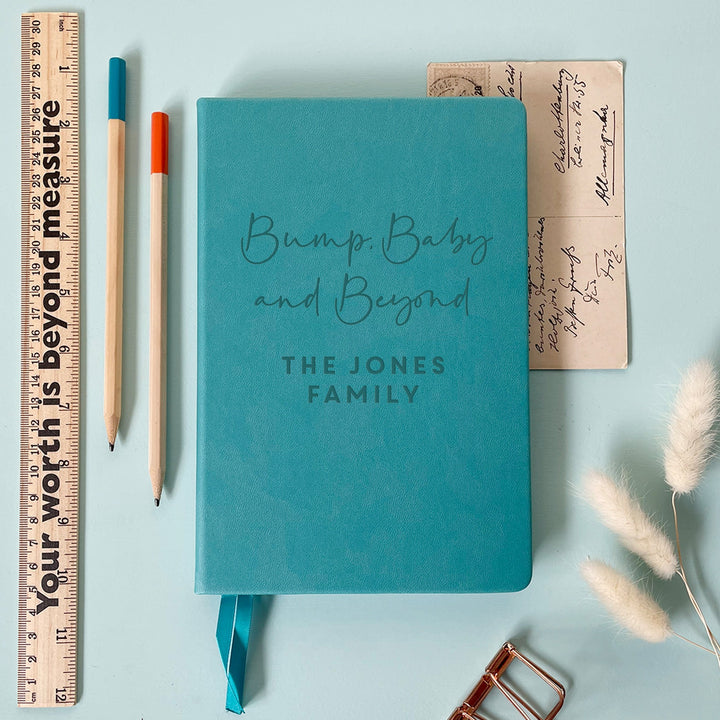 Your worth is beyond measure
Bump, Baby
and Beyond
THE JONES
FAMILY
Charlottenburg
Allemagnka
cm 1 2 3 4 5 6 7 8 9 10 11 12 13 14 15 16 17 18 19 20 21 22 23 24 25 26 27 28 29 30
1 2 3 4 5 6 7 8 9 10 11 12